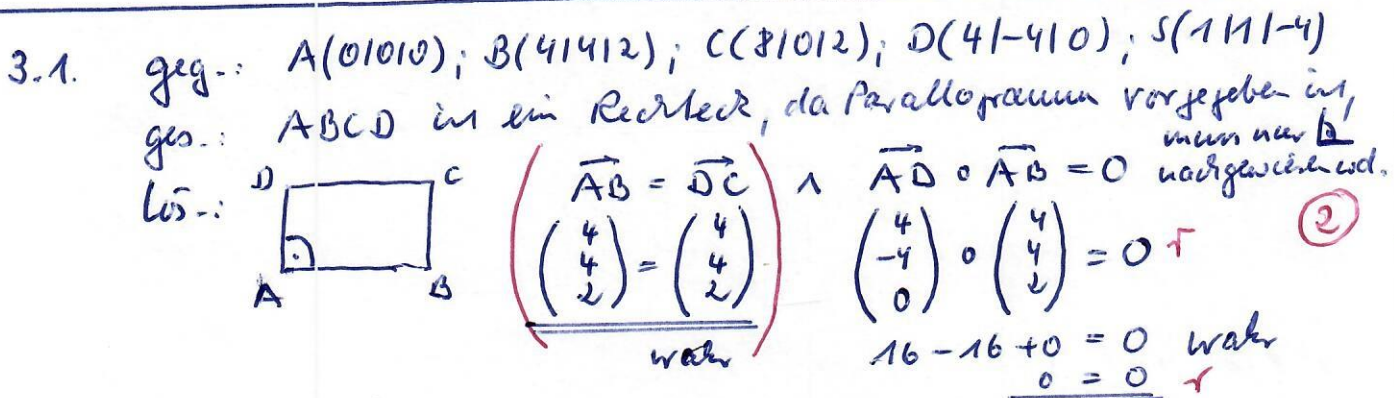 3.1. geg.: A(0|0|0); B(4|4|2); C(8|0|2); D(4|-4|0); S(1|1|-4)
ges.: ABCD ist ein Rechteck, da Parallogramm vorgegeben ist,
muss nur
nachgewiesen wd.
Lös.: D C A B
( AB = DC ) ∧ AD ∘ AB = 0
(4 4 2) = (4 4 2) (4 -4 0) ∘ (4 4 2) = 0 r
2
wahr
16 - 16 + 0 = 0 wahr
0 = 0 r